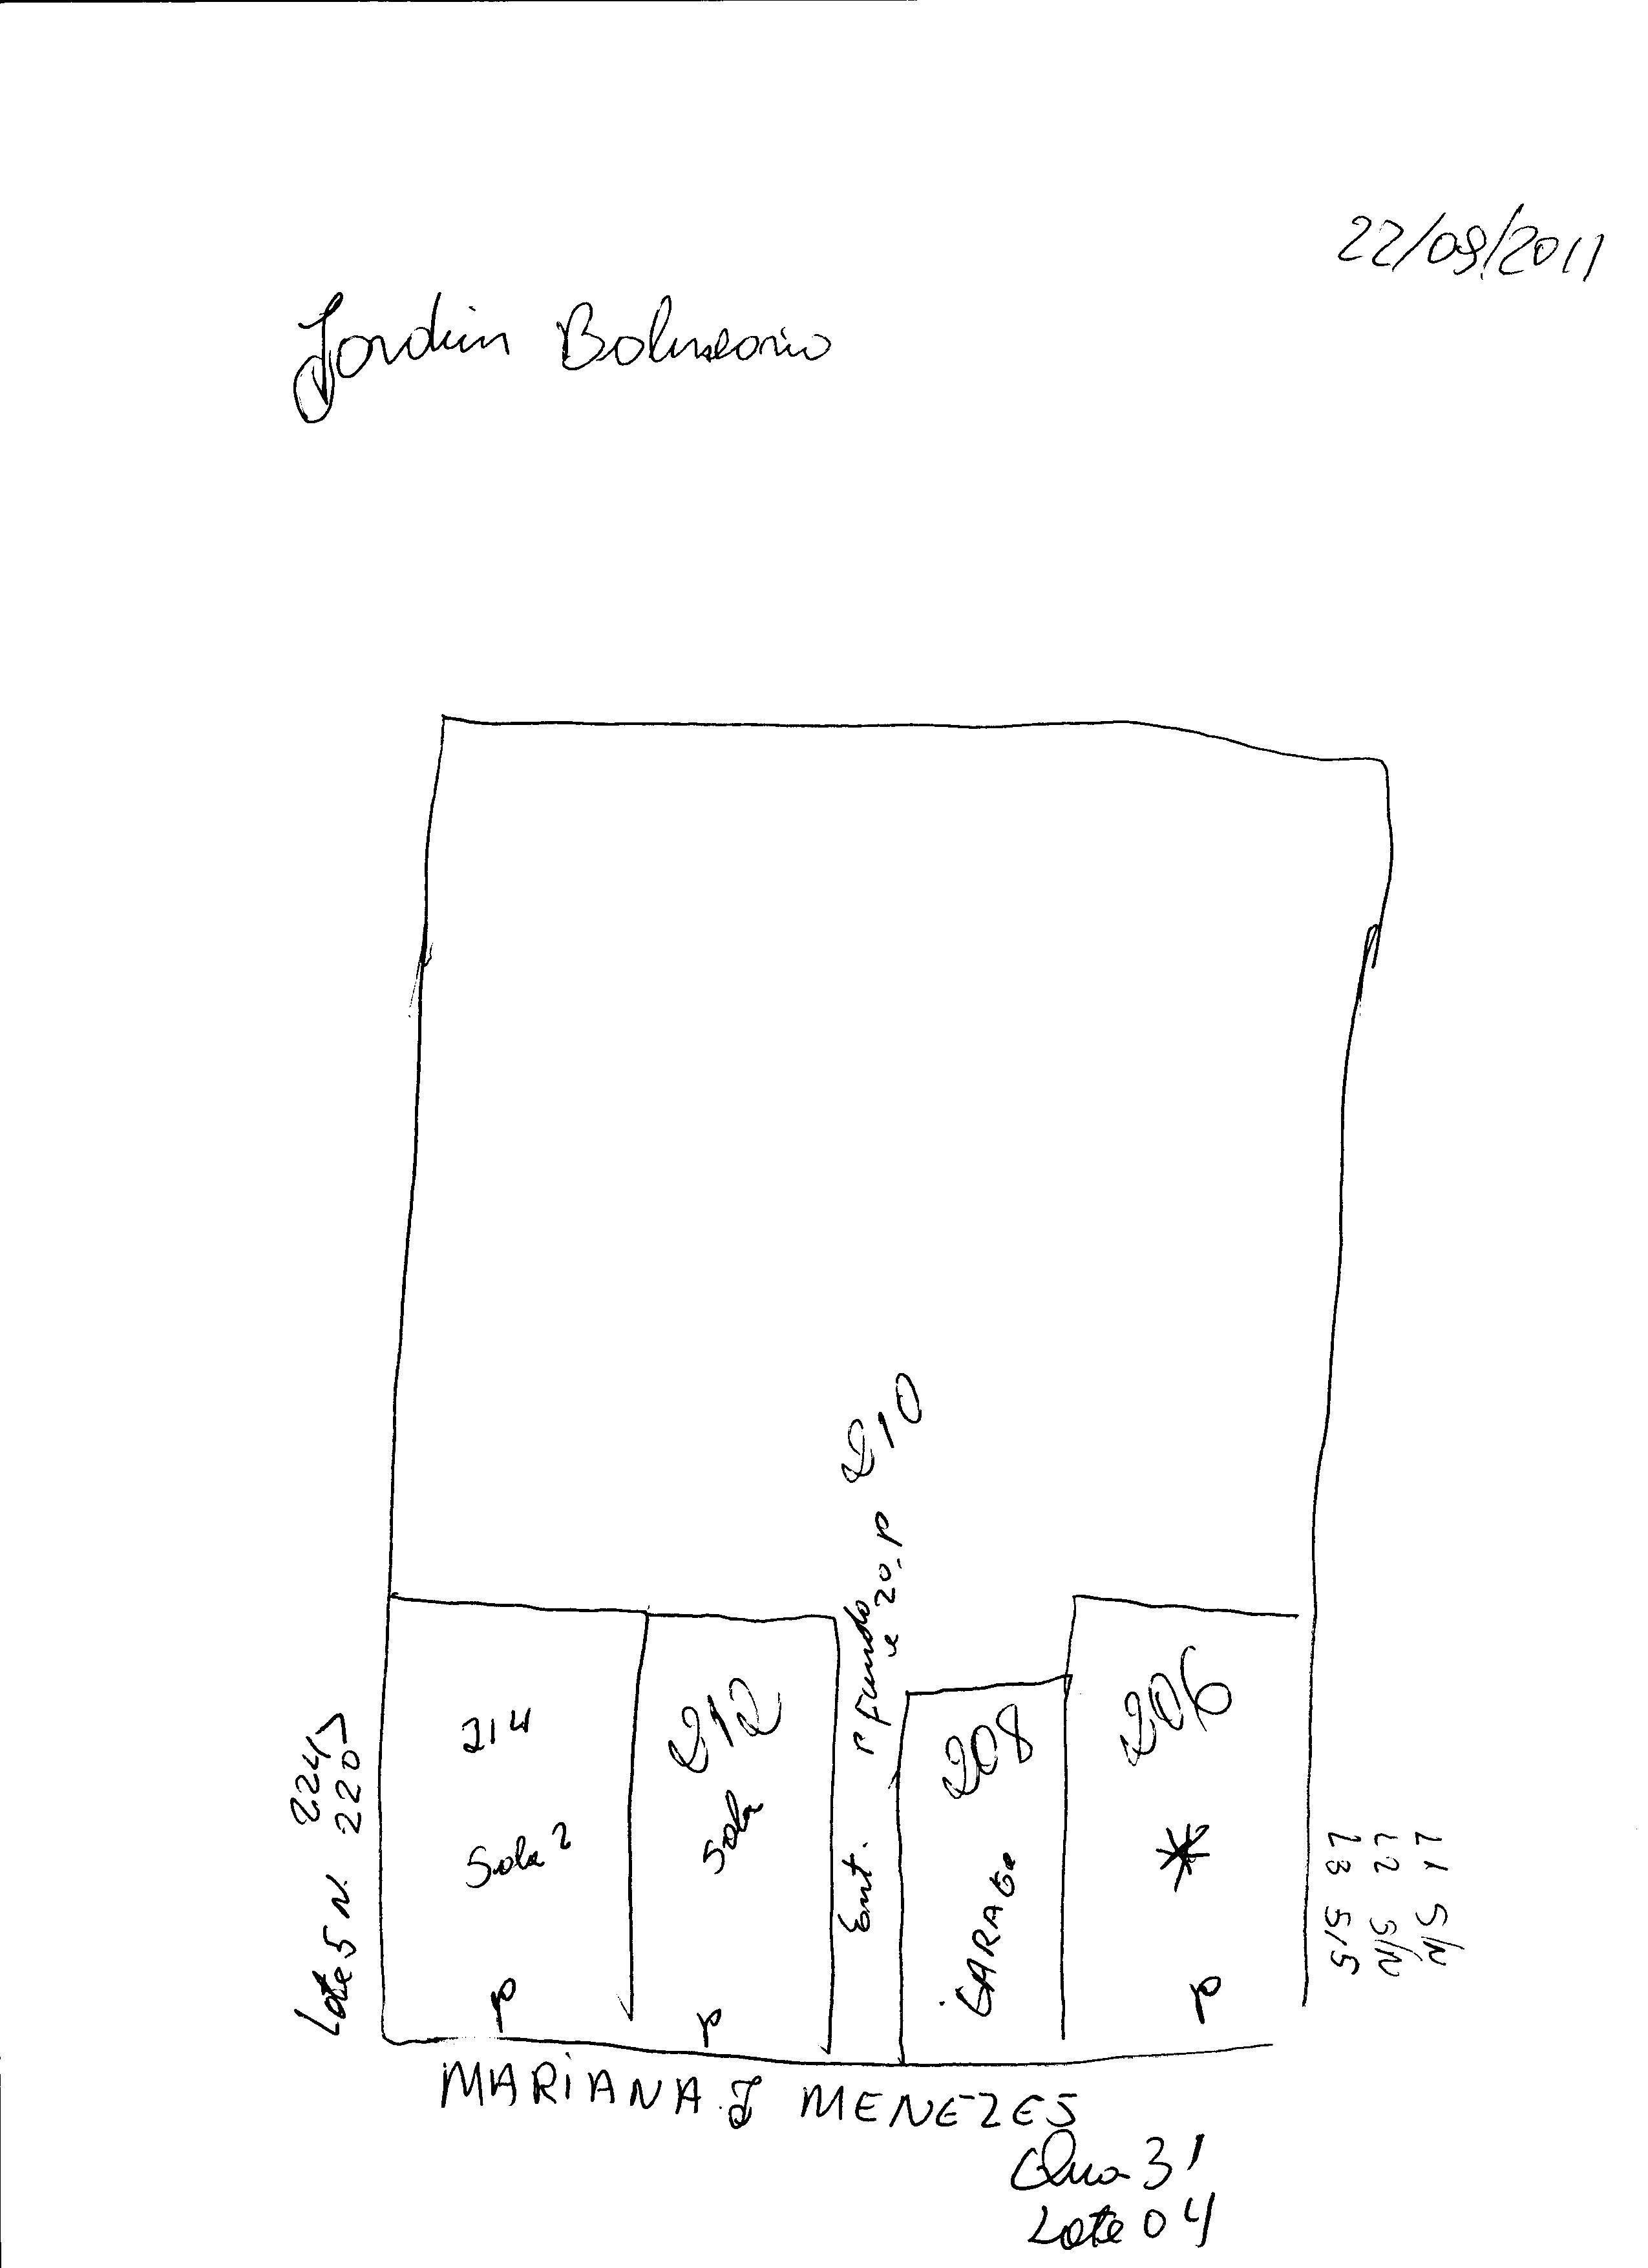 22/09/2011
Jardim Balneario
210
P fundo
e 20. P
214
Sala 2
P
212
Sala
P
Ent.
208
GARAGE
206
*
P
224>
Lote 5 N. 220>
L1 S/N
L2 S/N
L3 S/S
MARIANA J MENEZES
Qua 31
Lote 04